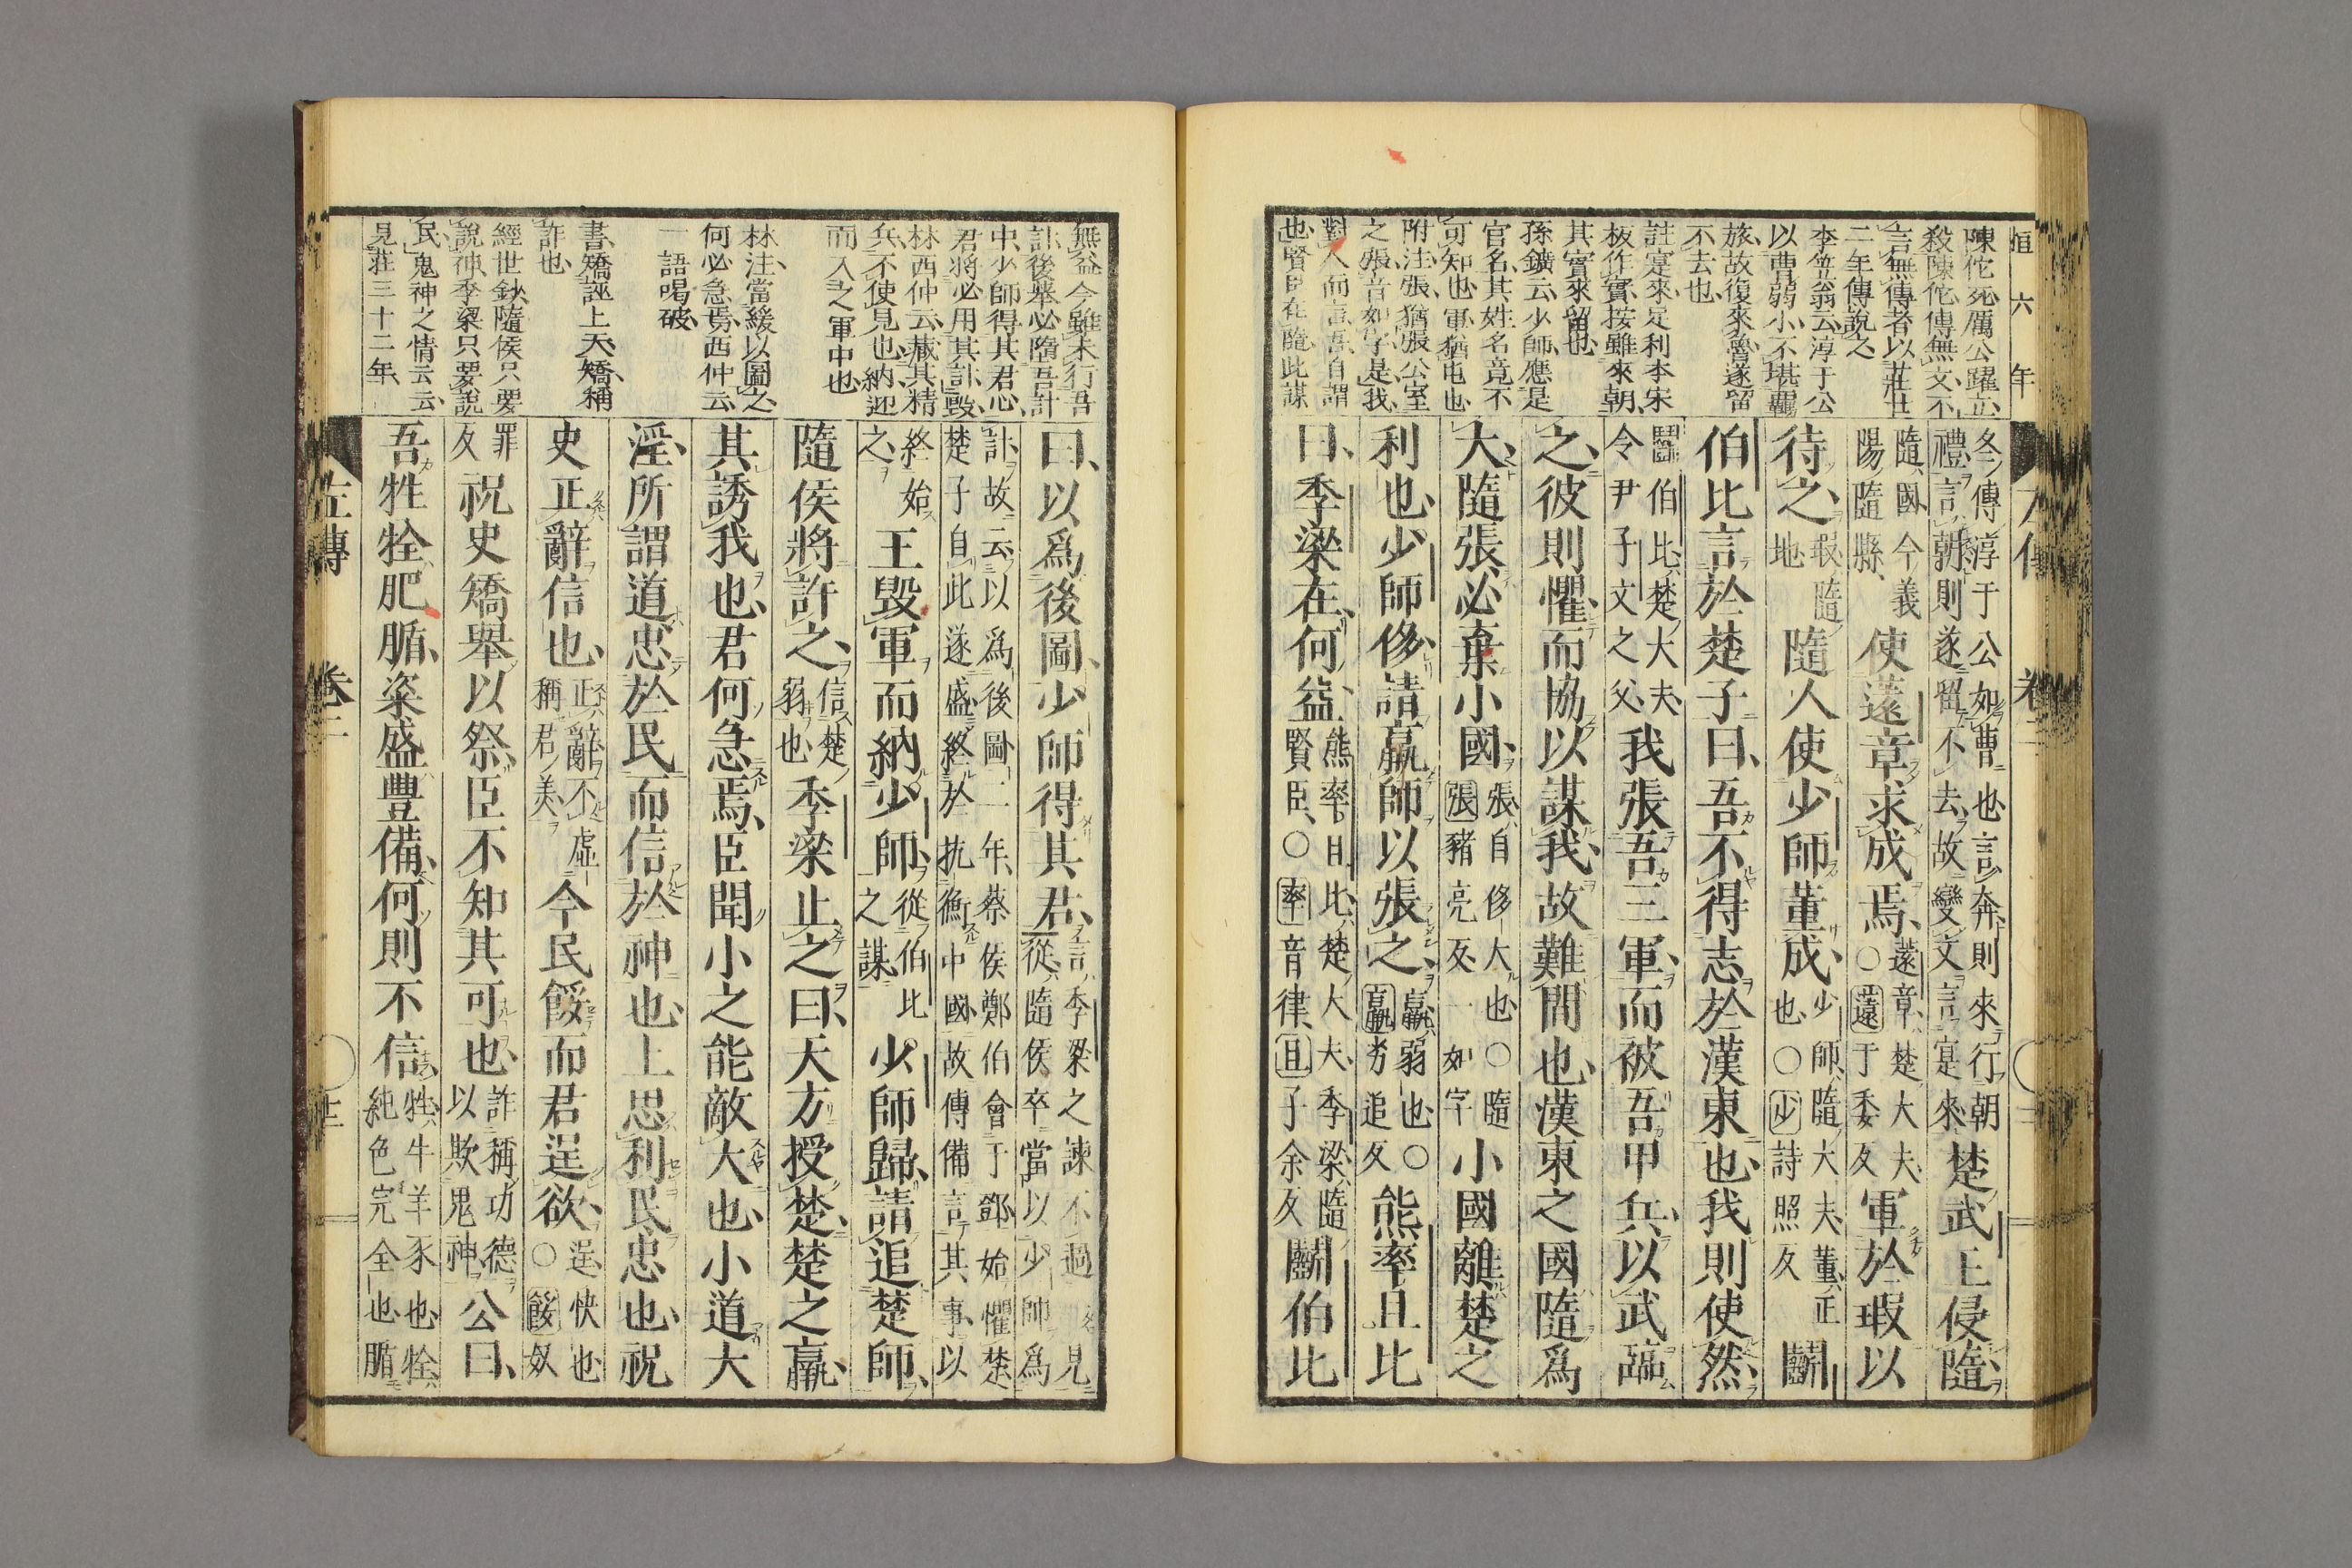 桓六年
左傳 卷二
陳佗死厲公躍立
殺陳佗傳無文不
言無傳者以莊廿
二年傳說之
李笠翁云淳于公
以曹弱小不堪羈
旅故復來魯遂留
不去也
註寔來足利本宋
板作實按雖來朝
其實來留也
孫鑛云少師應是
官名其姓名竟不
可知也軍猶屯也
附注張猶張公室
之張音如字是我
對人而言吾自謂
也賢臣在隨此謀
冬傳淳于公如曹也言奔則來行朝
禮言朝則遂留不去故變文言寔來
楚武王侵隨
隨國今義
陽隨縣
使薳章求成焉
薳章楚大夫
○薳于委反
軍於瑕以
待之
瑕隨
地
隨人使少師董成
少師隨大夫董正
也○少詩照反
鬭
伯比言於楚子曰吾不得志於漢東也我則使然
鬭伯比楚大夫
令尹子文之父
我張吾三軍而被吾甲兵以武臨
之彼則懼而協以謀我故難間也漢東之國隨爲
大隨張必棄小國
張自侈大也○隨
張豬亮反一如字
小國離楚之
利也少師侈請羸師以張之
羸弱也○
羸劣追反
熊率且比
曰季梁在何益
熊率且比楚大夫季梁隨
賢臣○率音律且子余反
鬭伯比
無益今雖未行吾
計後筭必隨吾計
中少師得其君心
君將必用其計毀
林西仲云藏其精
兵不使見也納迎
而入之軍中也
林注當緩以圖之
何必急焉西仲云
一語喝破
書矯誣上天矯稱
詐也
經世鈔隨侯只要
說神季梁只要說
民鬼神之情云云
見莊三十二年
曰以爲後圖少師得其君
言季梁之諫不過一見
從隨侯卒當以少師爲
計故云以爲後圖二年蔡侯鄭伯會于鄧始懼楚
楚子自此遂盛終於抗衡中國故傳備言其事以
終始
之
王毀軍而納少師
從伯比
之謀
少師歸請追楚師
隨侯將許之
信楚
弱也
季梁止之曰天方授楚楚之羸
其誘我也君何急焉臣聞小之能敵大也小道大
淫所謂道忠於民而信於神也上思利民忠也祝
史正辭信也
正辭不虛
稱君美
今民餒而君逞欲
逞快也
○餒奴
罪
反
祝史矯舉以祭臣不知其可也
詐稱功德
以欺鬼神
公曰
吾牲牷肥腯粢盛豐備何則不信
牲牛羊豕也牷
純色完全也腯
左傳 卷二